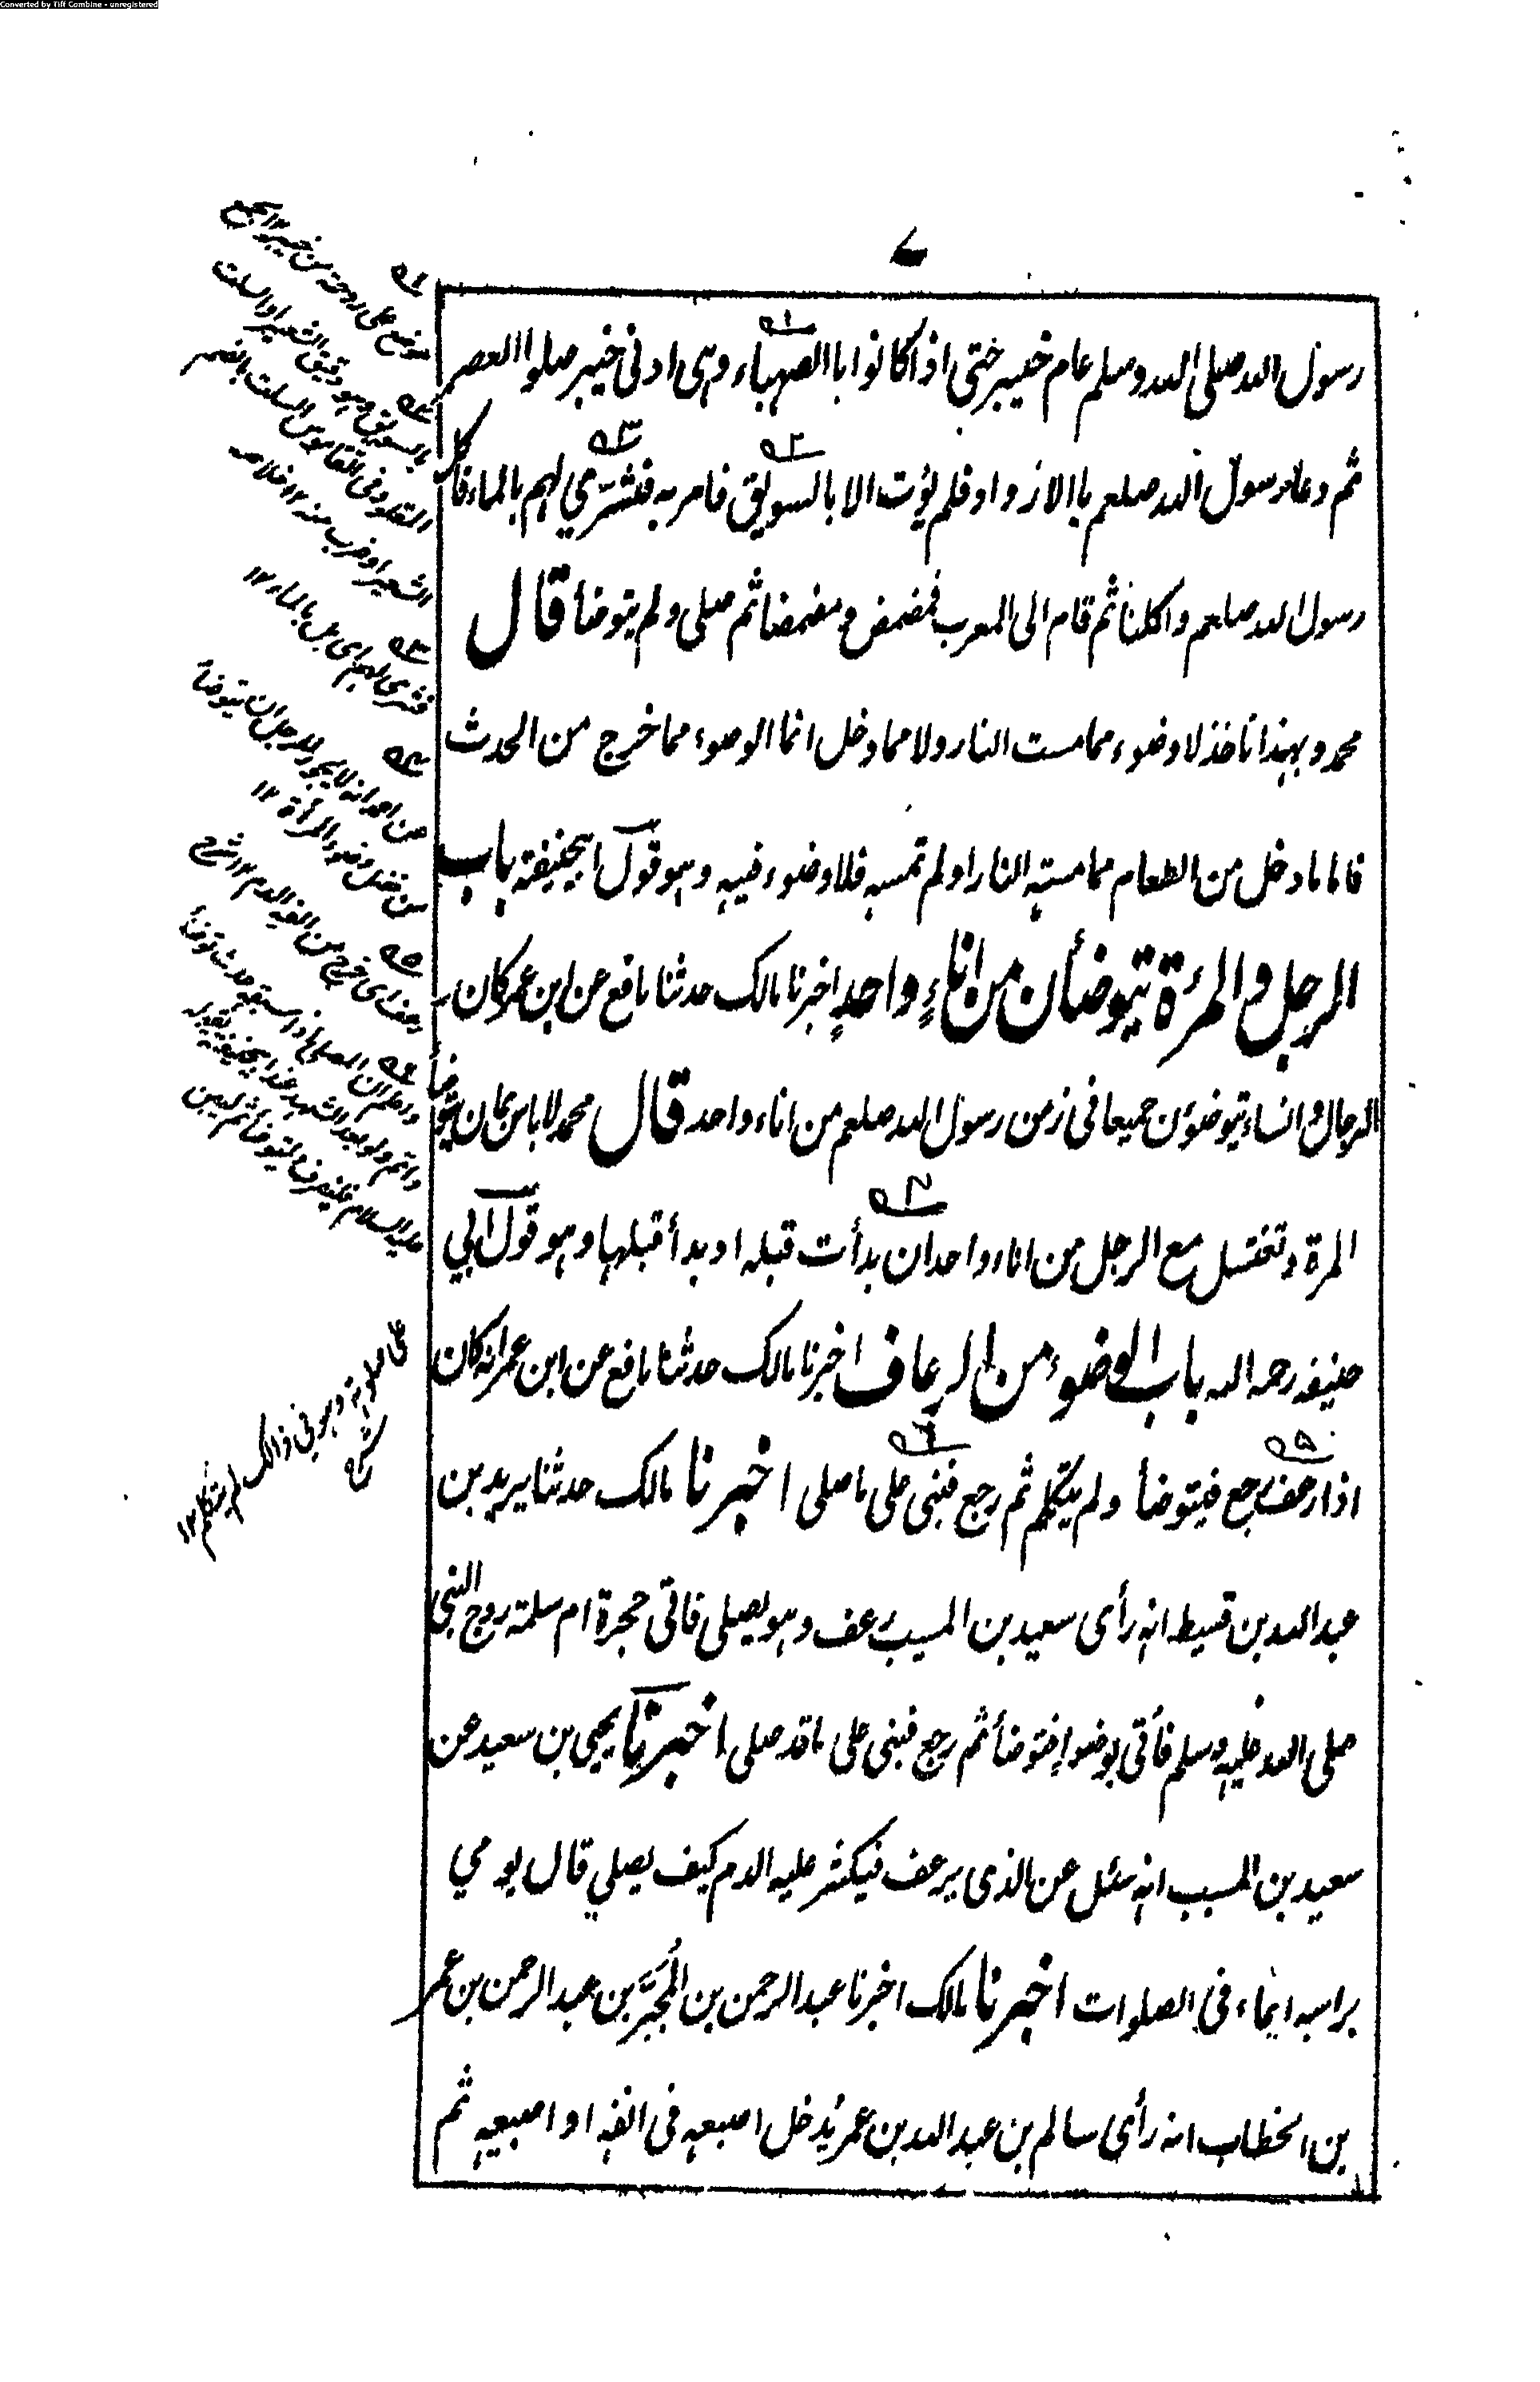 Converted by Tiff Combine - unregistered
٧
رسول الله صلى الله وسلم عام خيبر حتى اذا كانوا باالصهباء وهى ادنى خيبر صلوا العصر
ثم دعا رسول الله صلعم باالازواد فلم يؤت الا بالسويق فامر به فثرّي لهم بالماء فاكل
رسول الله صلعم واكلنا ثم قام الى المغرب فمضمض ومضمضنا ثم صلى ولم يتوضأ قال
محمد وبهذا ناخذ لا وضوء مما مست النار ولا مما دخل انما الوضوء مما خرج من الحدث
فاما ما دخل من الطعام مما مسته النار او لم تمسه فلا وضوء فيه وهو قول ابيحنيفة باب
الرجل والمرءة يتوضأن من اناءٍ واحدٍ اخبرنا مالك حدثنا نافع عن ابن عمر كان
الرجال والنساء يتوضؤن جميعا فى زمن رسول الله صلعم من اناء واحد قال محمد لاباس بان يتوضأ
المرة وتغتسل مع الرجل من اناء واحد ان بدأت قبله او بدأ قبلها وهو قول ابي
حنيفه رحمه الله باب الوضوء من الرعاف اخبرنا مالك حدثنا نافع عن ابن عمر انه كان
اذا رعف رجع فيتوضأ ولم يتكلم ثم رجع فبنى على ما صلى اخبرنا مالك حدثنا يريد بن
عبد الله بن قسيط انه رأى سعيد بن المسيب رعف وهو يصلى فاتى حجرة ام سلمة زوج النبى
صلى الله عليه وسلم فأتى بوضوء فتوضأ ثم رجع فبنى على ما قد صلى اخبرنا يحيى بن سعيد عن
سعيد بن المسيب انه سئل عن الذى يرعف فيكثر عليه الدم كيف يصلي قال يومي
براسه ايماء فى الصلوات اخبرنا مالك اخبرنا عبد الرحمن بن المُجَبَّر بن عبد الرحمن بن عمر
بن الخطاب انه رأى سالم بن عبد الله بن عمر يُدخل اصبعه فى انفه او اصبعيه ثم
موضع على روحة من خيبر
بالسويق وهو دقيق الشعير او السلت
فثرى لهم اى بل بالماء ١٢
من فضل وضوء المرأة ١٢